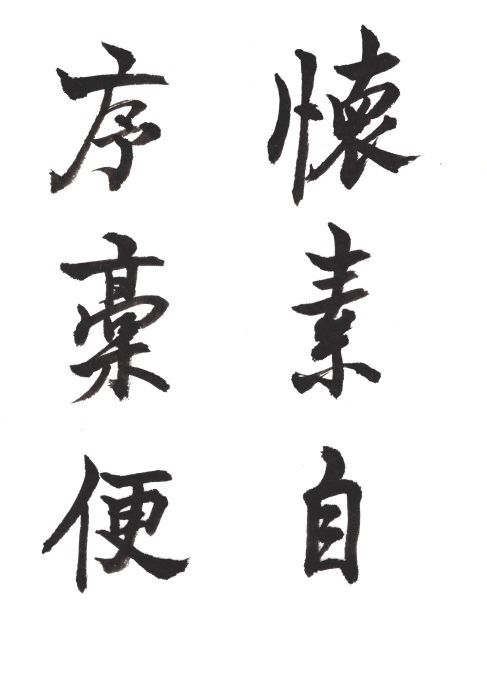 懐素自
序稾便